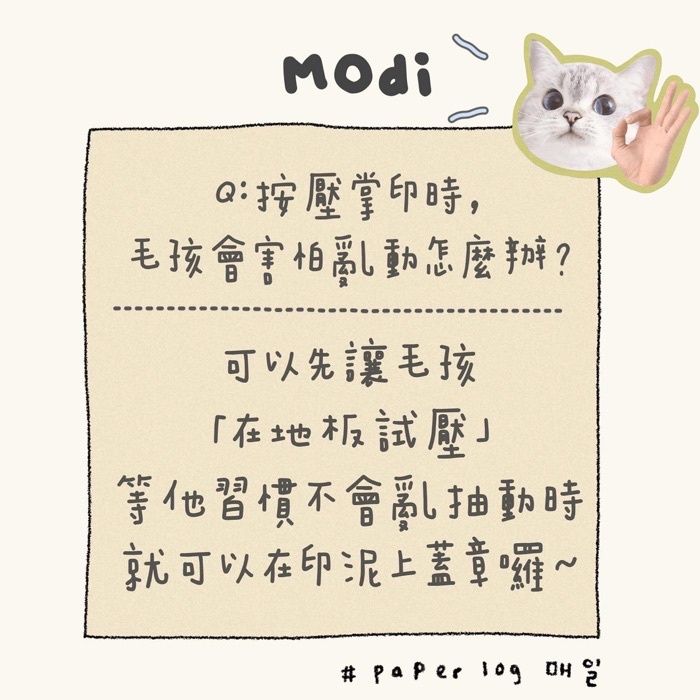 MOdi
Q:按壓掌印時,
毛孩會害怕亂動怎麼辦?
可以先讓毛孩
「在地板試壓」
等他習慣不會亂抽動時
就可以在印泥上蓋章囉~
# paper log 매일